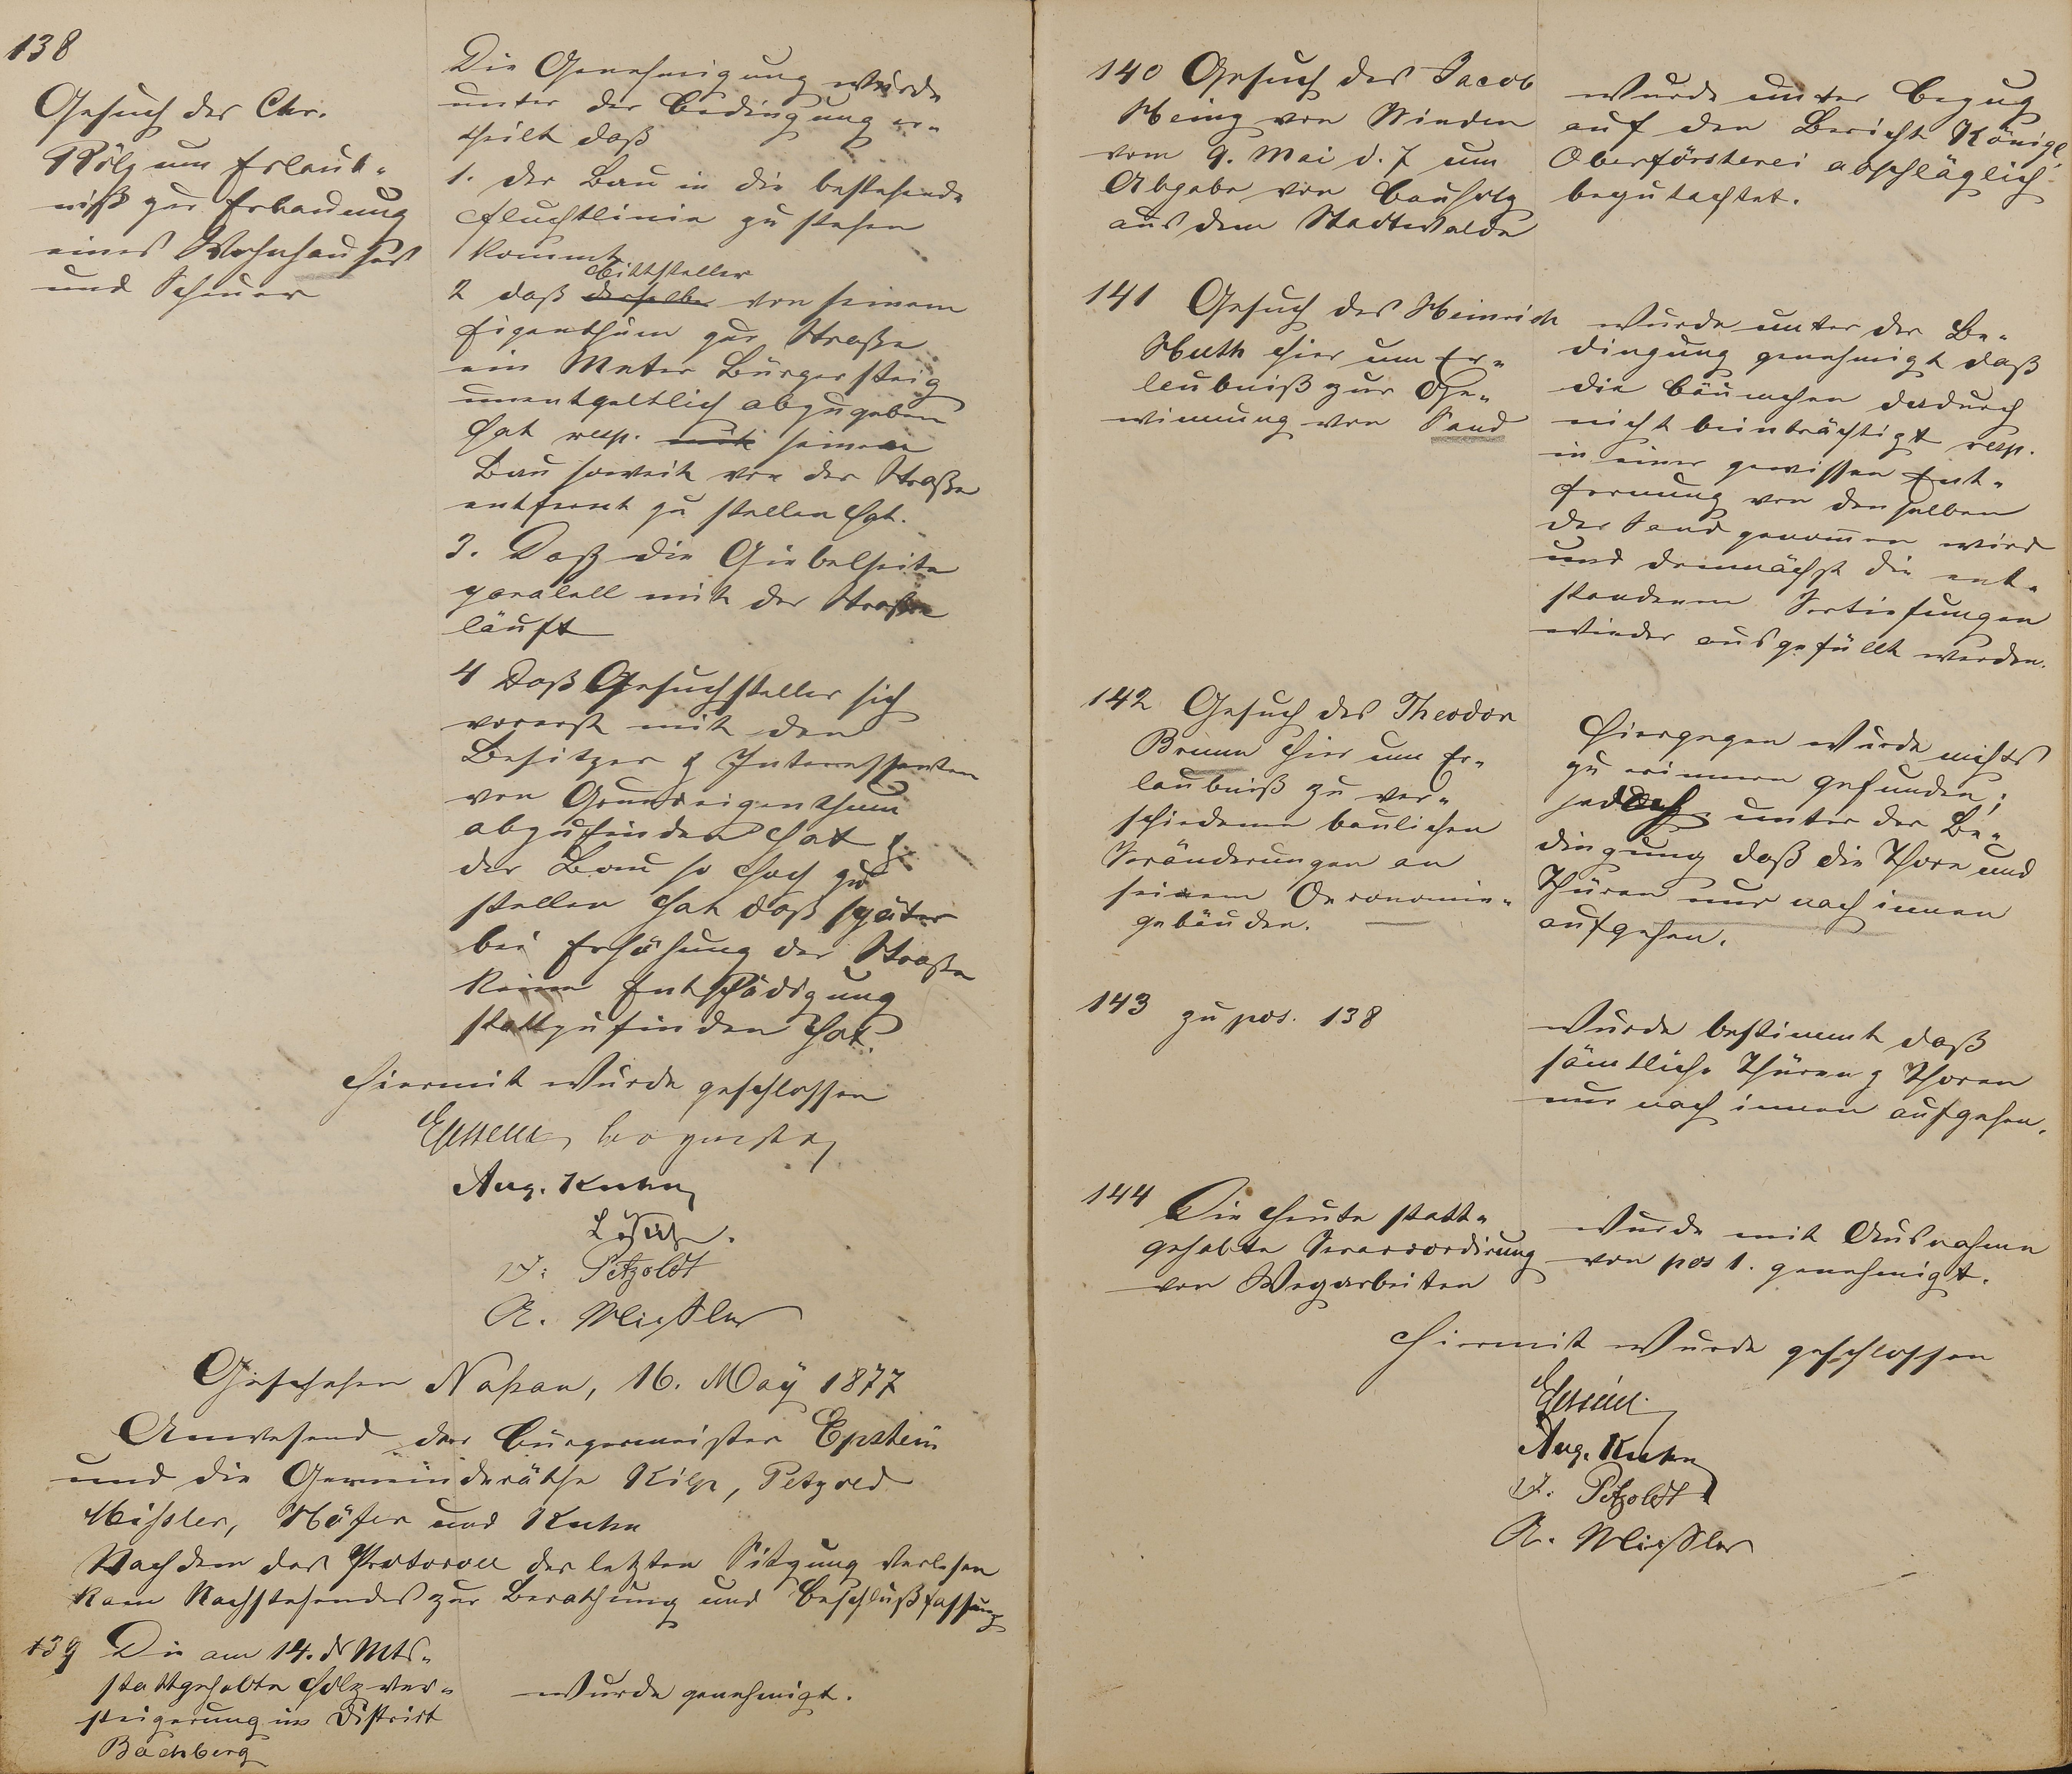 138
Gesuch des Chr.
Kölz um Erlaub-
niß zur Erbauung
eines Wohnhauses
und Scheuer
Die Genehmigung wurde
unter der Bedingung er-
theilt daß
1. der Bau in die bestehende
Fluchtlinie zu stehen
kommt
2 daß derselbe Bittsteller von seinem
Eigenthum zur Straße
ein Meter Bürgersteig
unentgeltlich abzugeben
hat resp. mit seinen
Bau soweit von der Straße
entfernt zu stellen hat.
3. Daß die Giebelseite
paralell mit der Straße
läuft
4 Daß Gesuchsteller sich
vorerst mit den
Besitzer & Interessenten
von Grundeigenthum
abzufinden hat &
der Bau so hoch zu
stellen hat daß später
bei Erhöhung der Straße
keine Entschädigung
stattzufinden hat.
Hiermit wurde geschlossen
Epstein, Bürgmstr,
Aug. Kuhn
F: Petzoldt
A. Mißler
Geschehen Naßau, 16. Maÿ 1877
Anwesend der Bürgermeister Epstein
und die Gemeinderäthe Kilp, Petzold
Mißler, Höfer und Kuhn
Nachdem das Protocoll der letzten Sitzung verlesen
kam Nachstehendes zur Berathung und Beschlußfassung
139 Die am 14. ds Mts.
stattgehabte Holzver-
steigerung im District
Bachberg
wurde genehmigt.
140 Gesuch des Jacob
Heinz von Winden
vom 9. Mai d. J um
Abgabe von Bauholz
aus dem Stadtwalde
wurde unter Bezug
auf den Bericht Königl.
Oberförsterei abschläglich
begutachtet.
141 Gesuch des Heinrich
Huth hier um Er-
laubniß zur Ge-
winnung von Sand
wurde unter der Be-
dingung genehmigt daß
die Bäumchen dadurch
nicht beinträchtigt resp.
in einer gewissen Ent-
fernung von denselben
der Sand genommen wird
und demnächst die ent-
standenen Vertiefungen
wieder ausgefüllt werden.
142 Gesuch des Theodor
Bruun hier um Er-
laubniß zu ver-
schiedenen baulichen
Veränderungen an
seinem Oeconomie-
gebäuden.
Hiergegen wurde nichts
zu erinnern gefunden;
jedoch unter der Be-
dingung daß die Thore und
Thüren nur nach innen
aufgehen.
143 zu pos. 138
wurde bestimmt daß
sämtliche Thüren & Thoren
nur nach innen aufgehen.
144 Die heute statt-
gehabte Veraccordirung
von Wegarbeiten
wurde mit Ausnahme
von pos 1. genehmigt.
Hiermit wurde geschlossen
Epstein
Aug. Kuhn
F. Petzoldt
A. Mißler